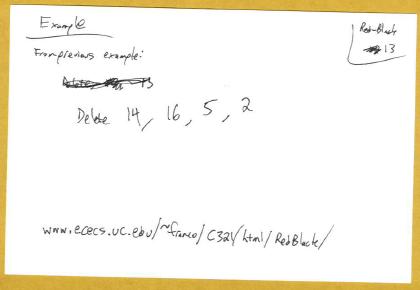 Example
Red-Black
13
From previous example:
Delete 14, 16, 5, 2
www.ececs.uc.edu/~franco/C321/html/RedBlack/